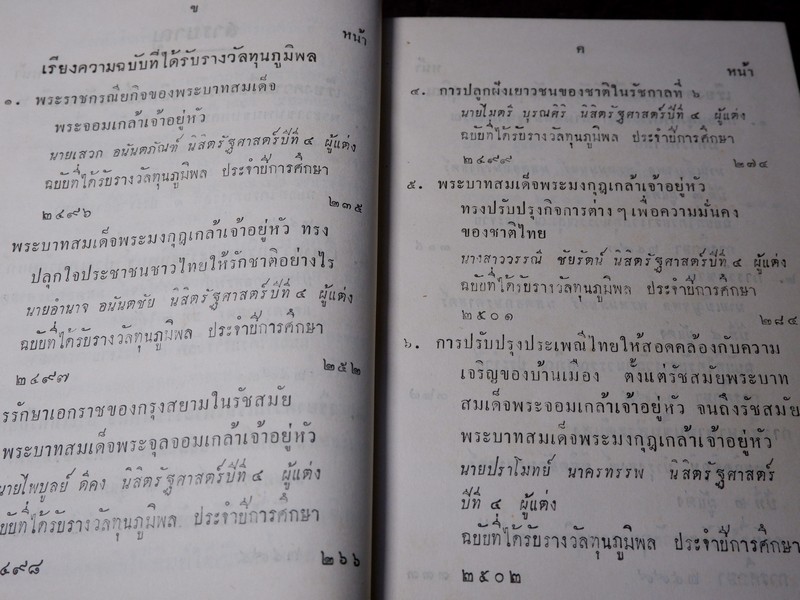 ข
หน้า
เรียงความฉบับที่ได้รับรางวัลทุนภูมิพล
๑. พระราชกรณียกิจของพระบาทสมเด็จ
พระจอมเกล้าเจ้าอยู่หัว
นายเสวก อนันตภัณฑ์ นิสิตรัฐศาสตร์ปีที่ ๔ ผู้แต่ง
ฉบับที่ได้รับรางวัลทุนภูมิพล ประจำปีการศึกษา
๒๔๙๖ ๒๓๕
พระบาทสมเด็จพระมงกุฎเกล้าเจ้าอยู่หัว ทรง
ปลุกใจประชาชนชาวไทยให้รักชาติอย่างไร
นายอำนาจ อนันตชัย นิสิตรัฐศาสตร์ปีที่ ๔ ผู้แต่ง
ฉบับที่ได้รับรางวัลทุนภูมิพล ประจำปีการศึกษา
๒๔๙๗ ๒๕๒
รรักษาเอกราชของกรุงสยามในรัชสมัย
พระบาทสมเด็จพระจุลจอมเกล้าเจ้าอยู่หัว
นายไพบูลย์ ดีคง นิสิตรัฐศาสตร์ปีที่ ๔ ผู้แต่ง
บับที่ได้รับรางวัลทุนภูมิพล ประจำปีการศึกษา
๔๙๘ ๒๖๖
ค
หน้า
๔. การปลุกฝังเยาวชนของชาติในรัชกาลที่ ๖
นายไมตรี บุรณศิริ นิสิตรัฐศาสตร์ปีที่ ๔ ผู้แต่ง
ฉบับที่ได้รับรางวัลทุนภูมิพล ประจำปีการศึกษา
๒๔๙๙ ๒๗๔
๕. พระบาทสมเด็จพระมงกุฎเกล้าเจ้าอยู่หัว
ทรงปรับปรุงกิจการต่าง ๆ เพื่อความมั่นคง
ของชาติไทย
นางสาววรรณี ชัยรัตน์ นิสิตรัฐศาสตร์ปีที่ ๔ ผู้แต่ง
ฉบับที่ได้รับรางวัลทุนภูมิพล ประจำปีการศึกษา
๒๕๐๑ ๒๘๔
๖. การปรับปรุงประเพณีไทยให้สอดคล้องกับความ
เจริญของบ้านเมือง ตั้งแต่รัชสมัยพระบาท
สมเด็จพระจอมเกล้าเจ้าอยู่หัว จนถึงรัชสมัย
พระบาทสมเด็จพระมงกุฎเกล้าเจ้าอยู่หัว
นายปราโมทย์ นาครทรรพ นิสิตรัฐศาสตร์
ปีที่ ๔ ผู้แต่ง
ฉบับที่ได้รับรางวัลทุนภูมิพล ประจำปีการศึกษา
๒๕๐๒